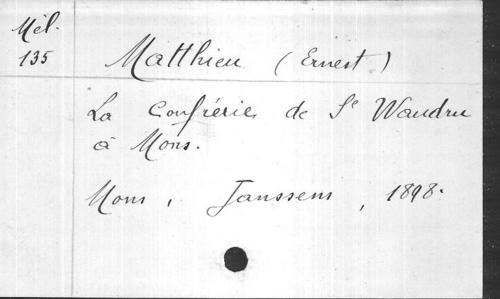 Mél.
135
Matthieu (Ernest)
La Confrérie de Ste Waudru
à Mons.
Mons, Janssens, 1898.